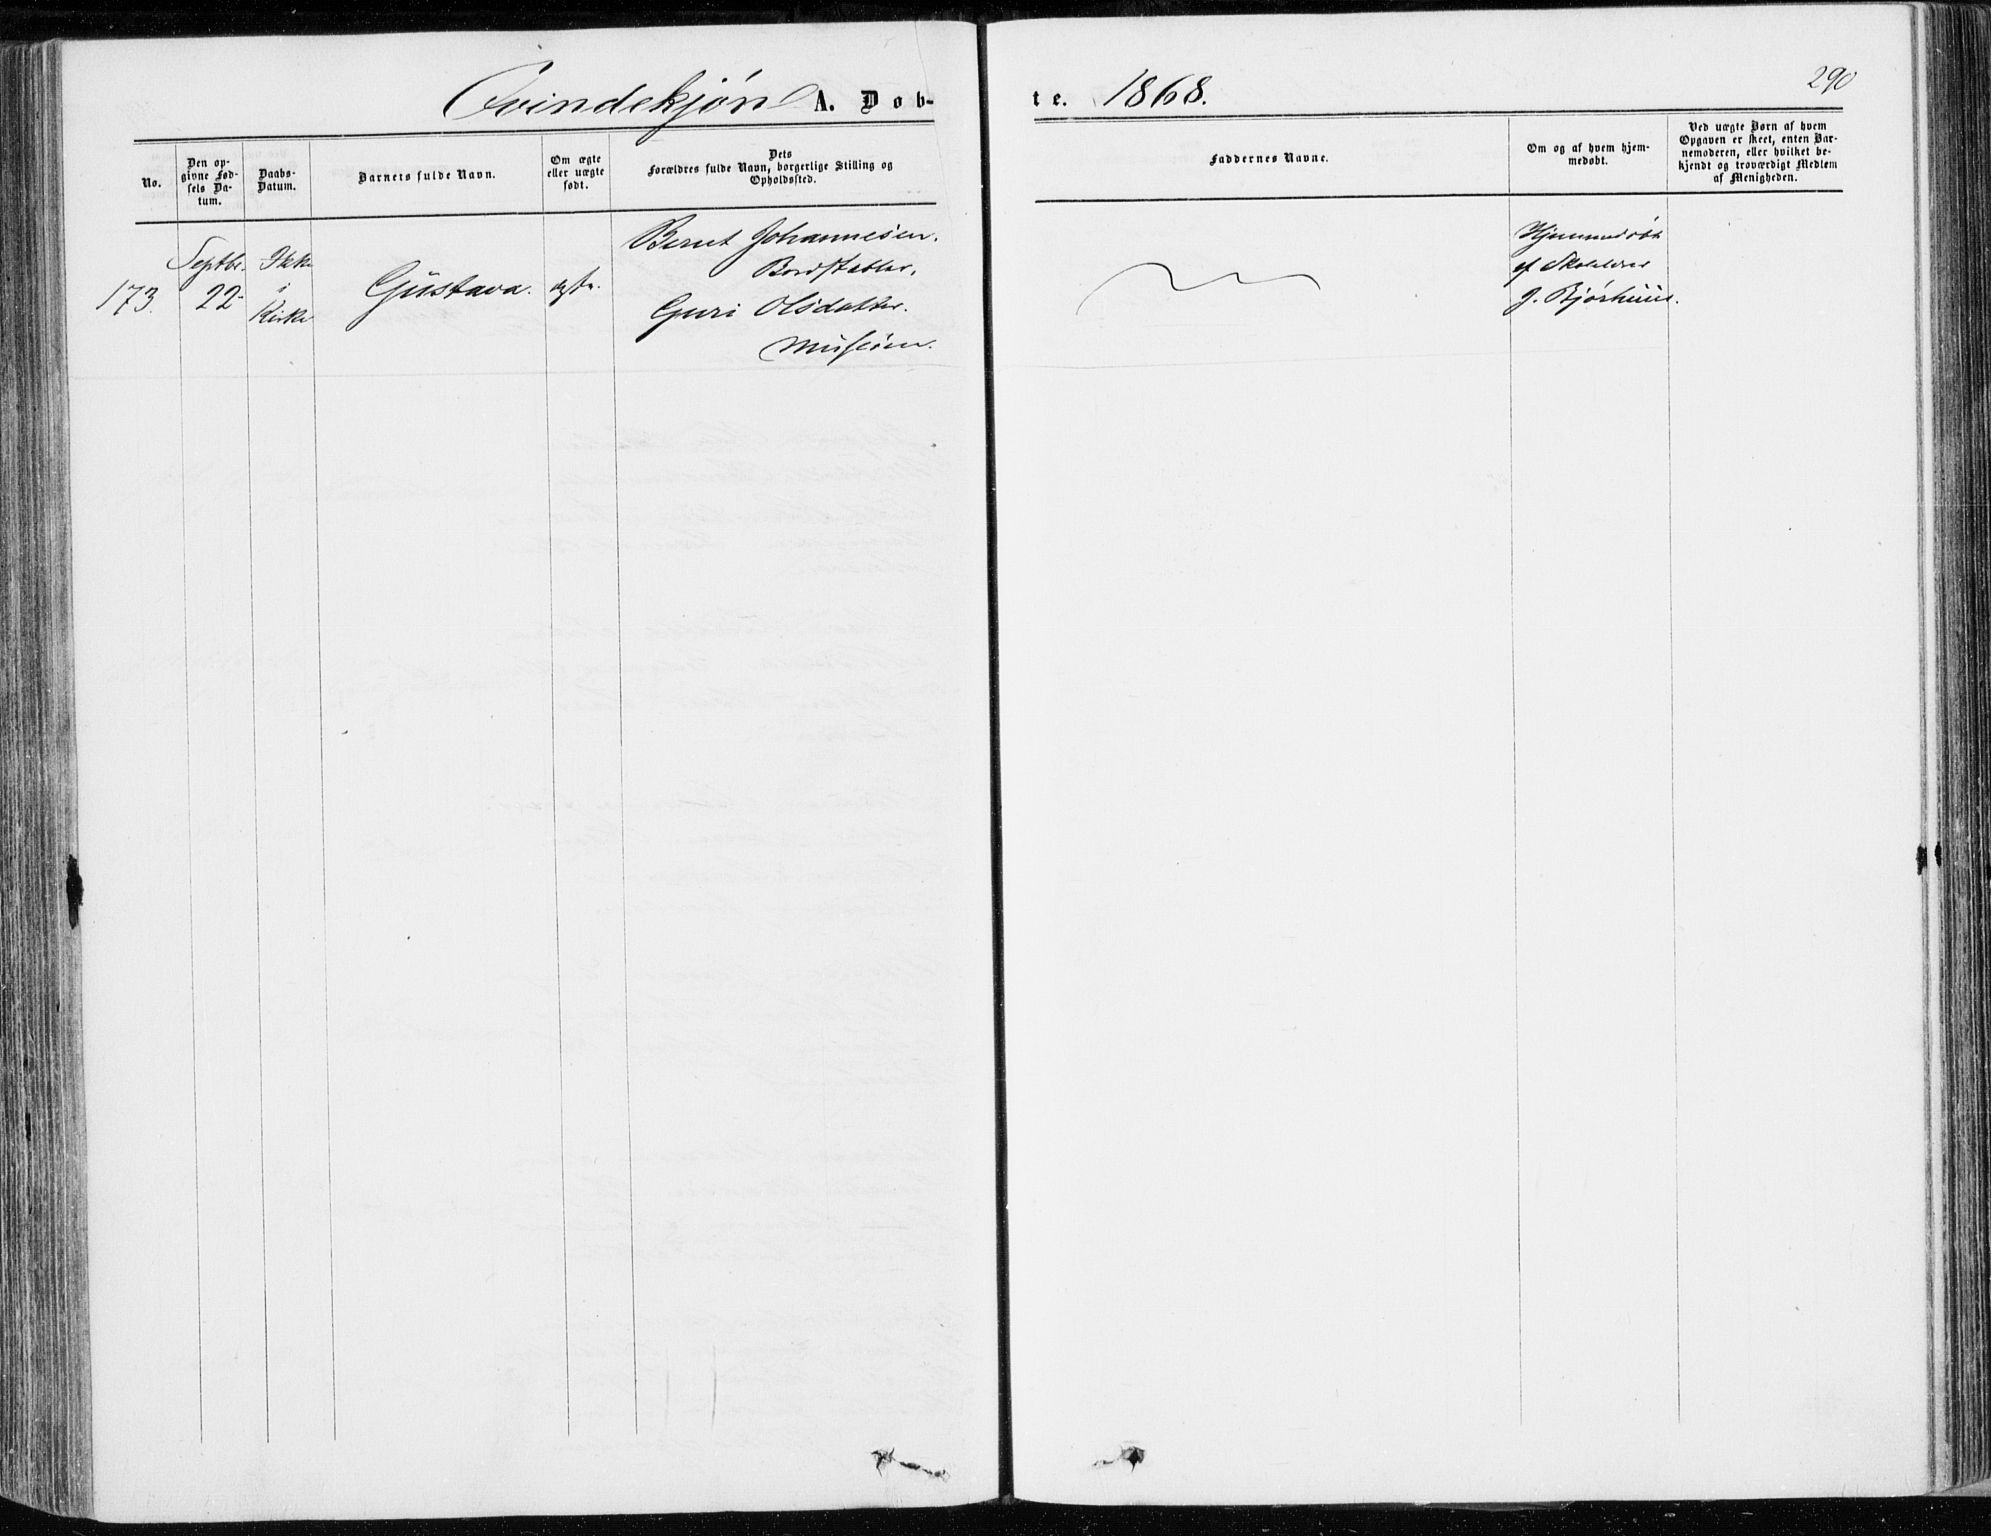 Qvindekjøn A. Døb-
te. 1868.
290
No.
Den op-
givne Fød-
sels Da-
tum.
Daabs-
Datum.
Barnets fulde Navn.
Om ægte
eller uægte
født.
Dets
Forældres fulde Navn, borgerlige Stilling og
Opholdssted.
Faddernes Navne.
Om og af hvem hjem-
medøbt.
Ved uægte Børn af hvem
Opgaven er skeet, enten Bar-
nemoderen, eller hvilket be-
kjendt og troværdigt Medlem
af Menigheden.
173.
Septbr.
22
Ikke
i
Kirke
Gustava.
ægte.
Bernt Johannesen.
Guri Olsdatter.
Hjemmedøbt
af Skolelærer
J. Bjørhuus.